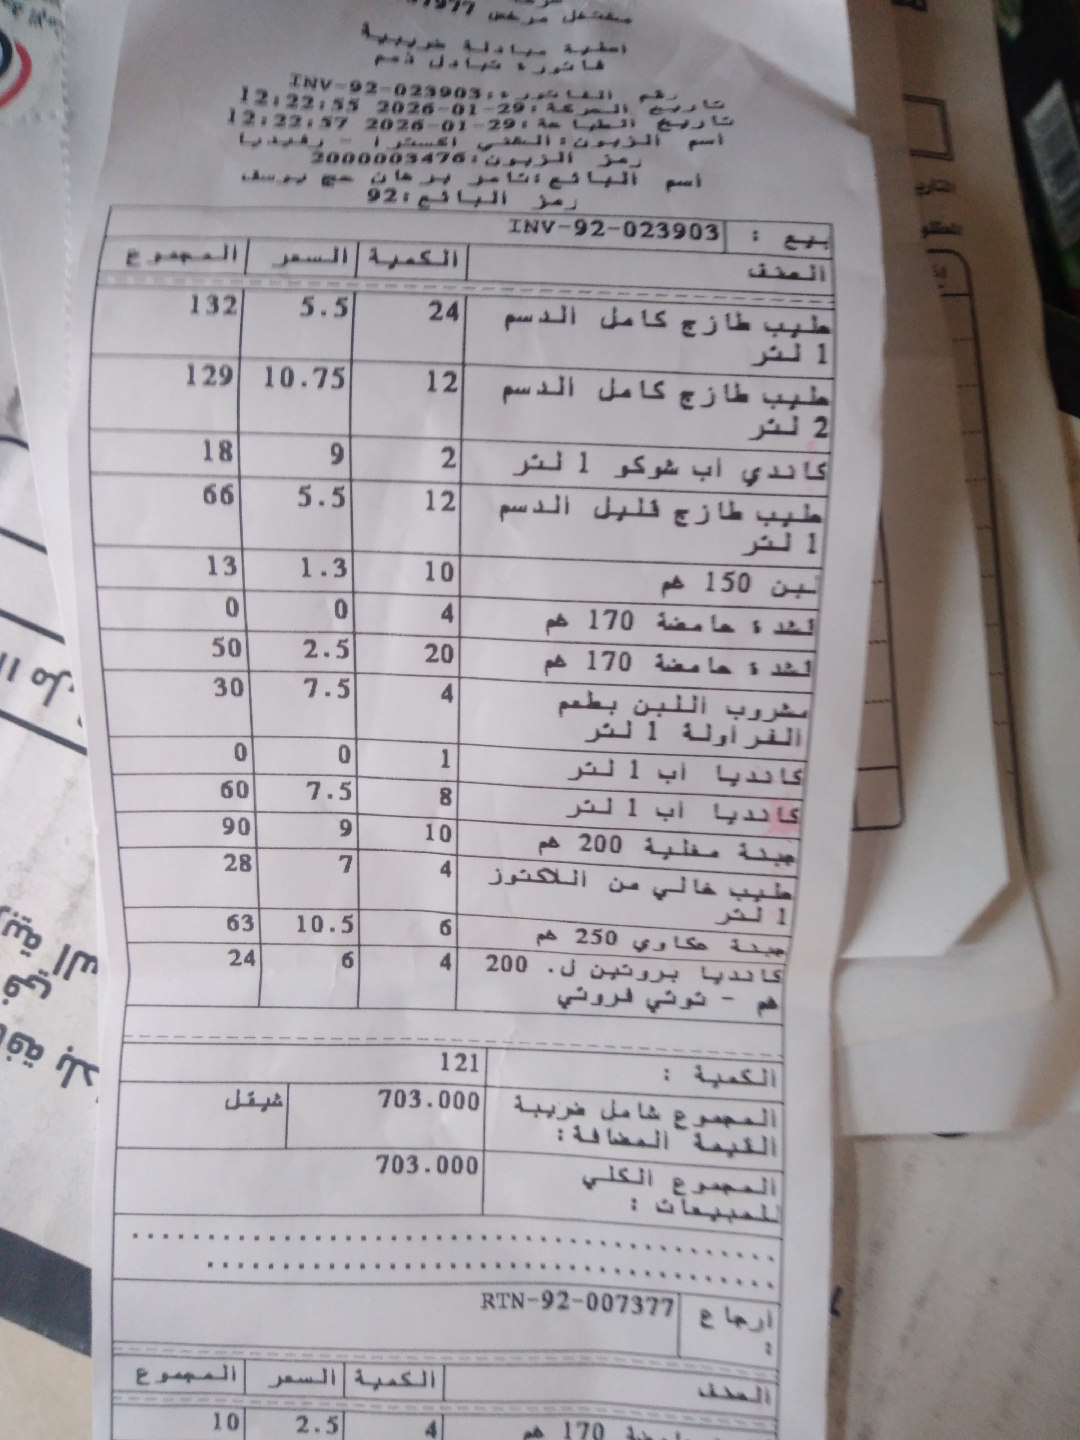 مشتغل مرخص
أصلية مبادلة ضريبية
فاتورة تبادل ذمم
رقم الفاتورة: INV-92-023903
تاريخ الحركة: 29-01-2026 12:22:55
تاريخ الطباعة: 29-01-2026 12:22:57
أسم الزبون: التقني اكسترا - رفيديا
رمز الزبون: 2000003476
أسم البائع: تامر برهان حج يوسف
رمز البائع: 92
بيع : INV-92-023903
الصنف الكمية السعر المجموع
حليب طازج كامل الدسم 24 5.5 132
1 لتر
حليب طازج كامل الدسم 12 10.75 129
2 لتر
كاندي أب شوكو 1 لتر 2 9 18
حليب طازج قليل الدسم 12 5.5 66
1 لتر
لبن 150 غم 10 1.3 13
قشدة حامضة 170 غم 4 0 0
قشدة حامضة 170 غم 20 2.5 50
مشروب اللبن بطعم 4 7.5 30
الفراولة 1 لتر
كانديا أب 1 لتر 1 0 0
كانديا أب 1 لتر 8 7.5 60
جبنة مغلية 200 غم 10 9 90
حليب خالي من اللاكتوز 4 7 28
1 لتر
جبنة عكاوي 250 غم 6 10.5 63
كانديا بروتين ل. 200 4 6 24
غم - توتي فروتي
الكمية : 121
المجموع شامل ضريبة 703.000 شيقل
القيمة المضافة:
المجموع الكلي 703.000
للمبيعات :
أرجاع RTN-92-007377
:
الصنف الكمية السعر المجموع
حامضة 170 غم 4 2.5 10